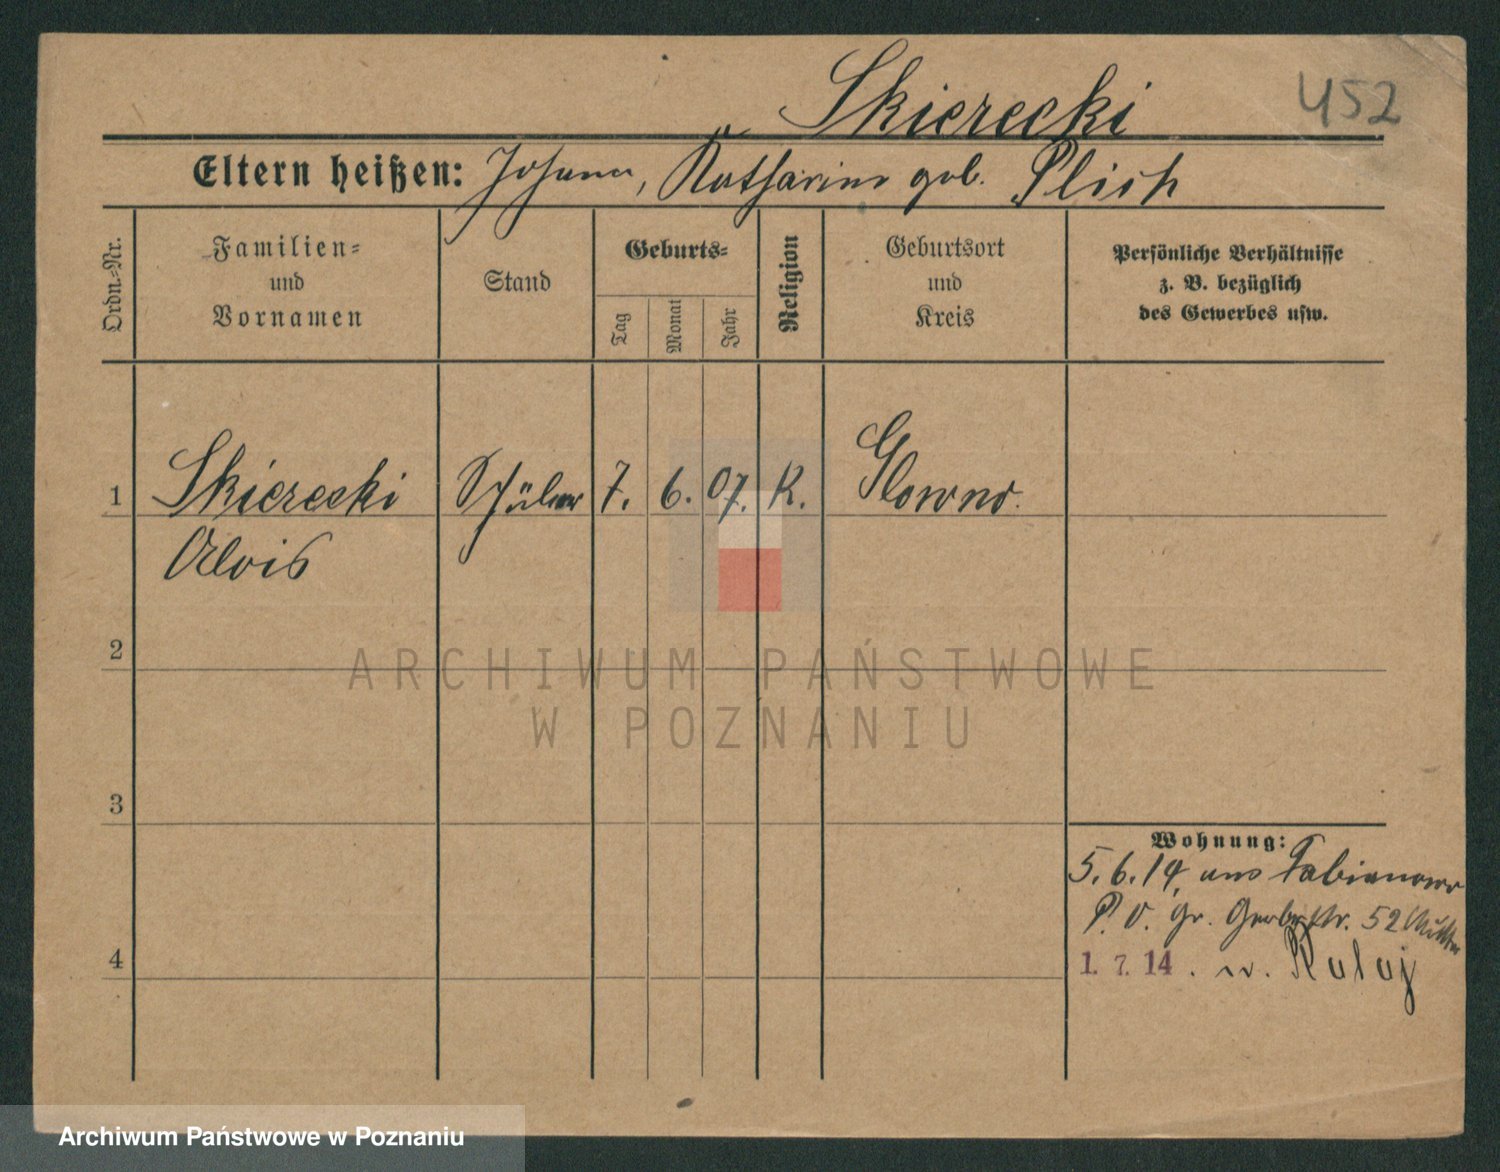 Skierecki
452
Eltern heißen: Johann, Katharina geb. Plich
Ordn.=Nr.
Familien=
und
Vornamen
Stand
Geburts=
Tag
Monat
Jahr
Religion
Geburtsort
und
Kreis
Persönliche Verhältnisse
z. B. bezüglich
des Gewerbes usw.
1 Skierecki Schüler 7. 6. 07. K. Glowno.
Alois
2
ARCHIWUM PAŃSTWOWE
W POZNANIU
3
Wohnung:
5.6.14, aus Fabianowo
P.O. Gr. Gerberstr. 52
4
1. 7. 14. n.
Archiwum Państwowe w Poznaniu